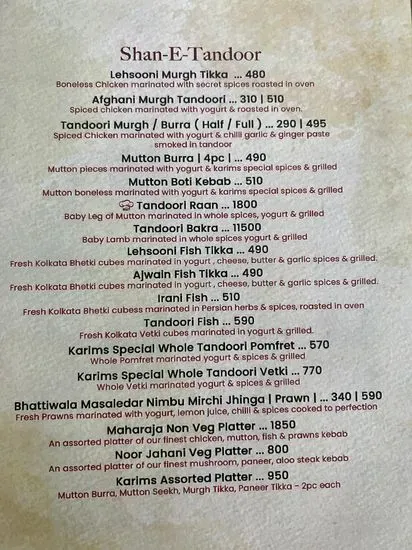 Shan-E-Tandoor
Lehsooni Murgh Tikka ... 480
Boneless Chicken marinated with secret spices roasted in oven
Afghani Murgh Tandoori ... 310 | 510
Spiced chicken marinated with yogurt & roasted in oven.
Tandoori Murgh / Burra ( Half / Full ) ... 290 | 495
Spiced Chicken marinated with yogurt & chilli garlic & ginger paste
smoked in tandoor
Mutton Burra | 4pc | ... 490
Mutton pieces marinated with yogurt & karims special spices & grilled
Mutton Boti Kebab ... 510
Mutton boneless marinated with yogurt & karims special spices & grilled
Tandoori Raan ... 1800
Baby Leg of Mutton marinated in whole spices, yogurt & grilled
Tandoori Bakra ... 11500
Baby Lamb marinated in whole spices yogurt & grilled
Lehsooni Fish Tikka ... 490
Fresh Kolkata Bhetki cubes marinated in yogurt , cheese, butter & garlic spices & grilled.
Ajwain Fish Tikka ... 490
Fresh Kolkata Bhetki cubes marinated in yogurt , cheese, butter & garlic spices & grilled.
Irani Fish ... 510
Fresh Kolkata Bhetki cubess marinated in Persian herbs & spices, roasted in oven
Tandoori Fish ... 590
Fresh Kolkata Vetki cubes marinated in yogurt & grilled.
Karims Special Whole Tandoori Pomfret ... 570
Whole Pomfret marinated yogurt & spices & grilled
Karims Special Whole Tandoori Vetki ... 770
Whole Vetki marinated yogurt & spices & grilled
Bhattiwala Masaledar Nimbu Mirchi Jhinga | Prawn | ... 340 | 590
Fresh Prawns marinated with yogurt, lemon juice, chilli & spices cooked to perfection
Maharaja Non Veg Platter ... 1850
An assorted platter of our finest chicken, mutton, fish & prawns kebab
Noor Jahani Veg Platter ... 800
An assorted platter of our finest mushroom, paneer, aloo steak kebab
Karims Assorted Platter ... 950
Mutton Burra, Mutton Seekh, Murgh Tikka, Paneer Tikka - 2pc each